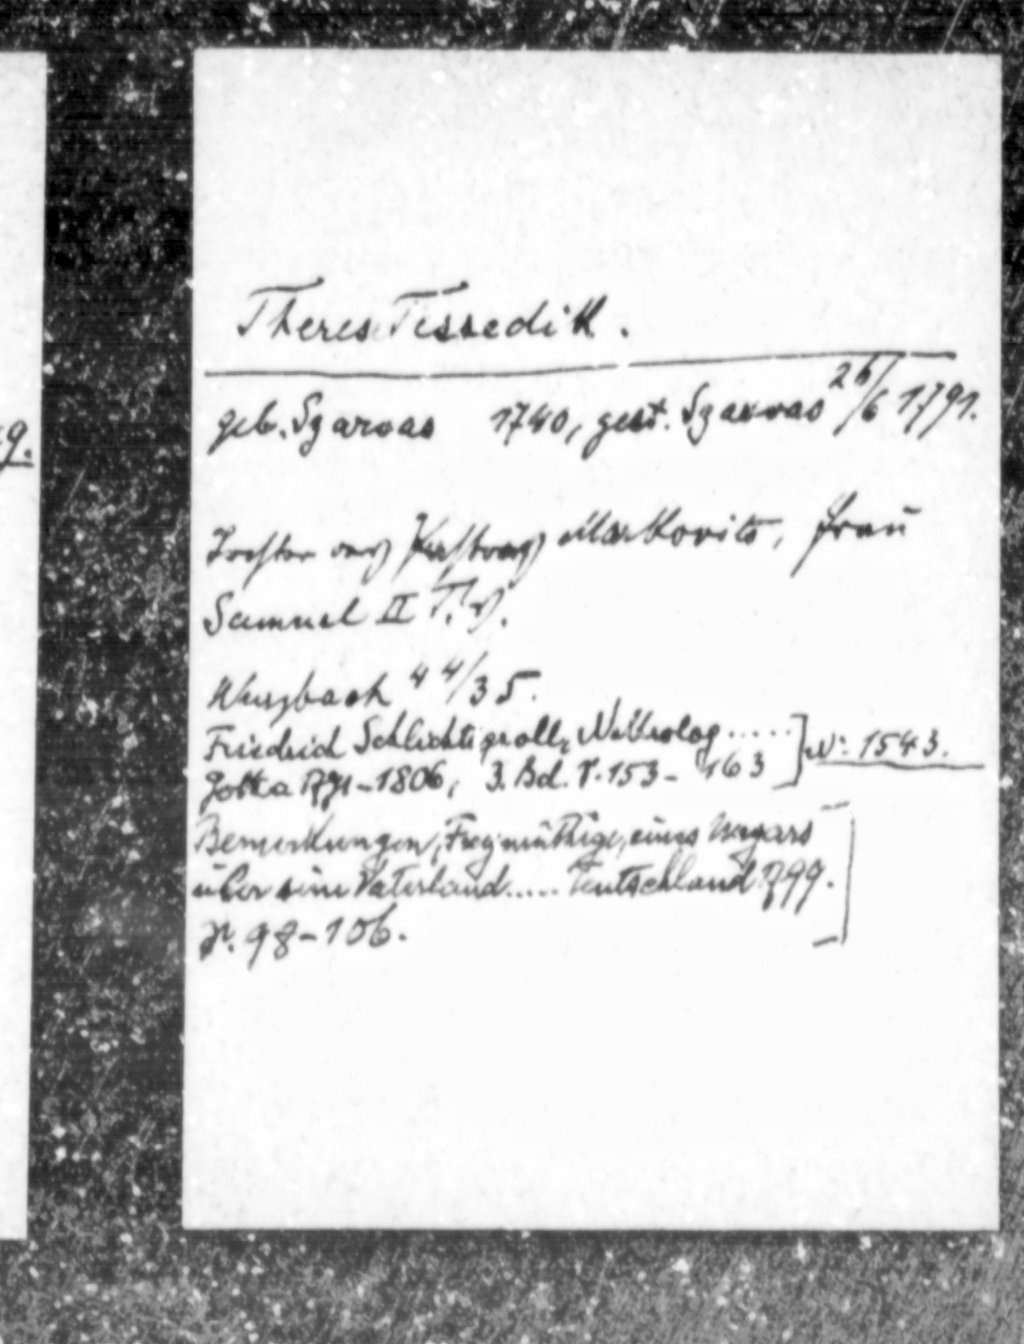 Theres Tessedik.
geb. Szarvas 1740, gest. Szarvas 26/6 1791.
Tochter des Pastors Markovits, Frau
Samuel II T.'s.
Wurzbach 44/35.
Friedrich Schlichtigroll, Nekrolog ..... ] Nr. 1543.
Gotha 1791-1806, 3. Bd. P. 153-163
Bemerkungen, Freymüthige, eines Ungars
über sein Vaterland..... Teutschland 799.
P. 98-106.
9.